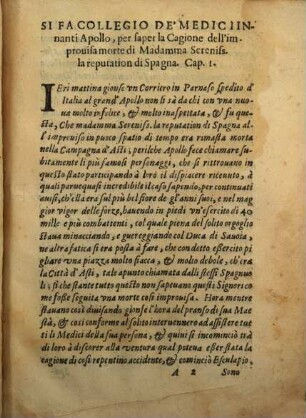 SI FA COLLEGIO DE' MEDICI IN-
nanti Apollo, per saper la Cagione dell'im-
prouisa morte di Madamma Sereniss.
la reputation di Spagna. Cap. 1.
IEri mattina gionse vn Corriero in Parnaso spedito d'
Italia al grand' Apollo non si sà da chi con vna nuo
ua molto infelice, & molto inaspettata, & fu que
sta, Che madamma Sereniss. la reputation di Spagna al
l'improuiso in puoco spatio di tempo era rimasta morta
nella Campagna d'Asti, perilche Apollo fece chiamare su-
bitamente li più famosi personaggi, che si ritrouano in
questo stato participandò à brò il dispiacere riceuuto, à
quali parue quasi incredibile il caso sapendo, per continuati
auisi, ch'ella era sul più bel fiore de gl'anni suoi, e nel mag
gior vigor delle forze, hauendo in piedi vn' esercito di 40
mille e più combattenti, col quale piena del solito orgoglio
staua minacciando, & guerreggiando col Duca di Sauoia,
ne altra fatica si era posta à fare, che condetto esercito pi
gliare vna piazza molto fiacca, & molto debole, ch'era
la Città d'Asti, tale apunto chiamata dalli stessi Spagnuo
li, si che stante tutto questo non sapeuano questi Signori co
me fosse seguita vna morte così improuisa. Hora mentre
stauano così diuisando gionse l'hora del pranso di sua Mae
stà, & così conforme al solito interuennero ad assistere tut
ti li Medici della sua persona, & quiui si incominciò trà
di loro à discorer alla ventura qual potena esser stata la
cagione di così repentino accidente, & cominciò Esculapio.
A 2 Sono